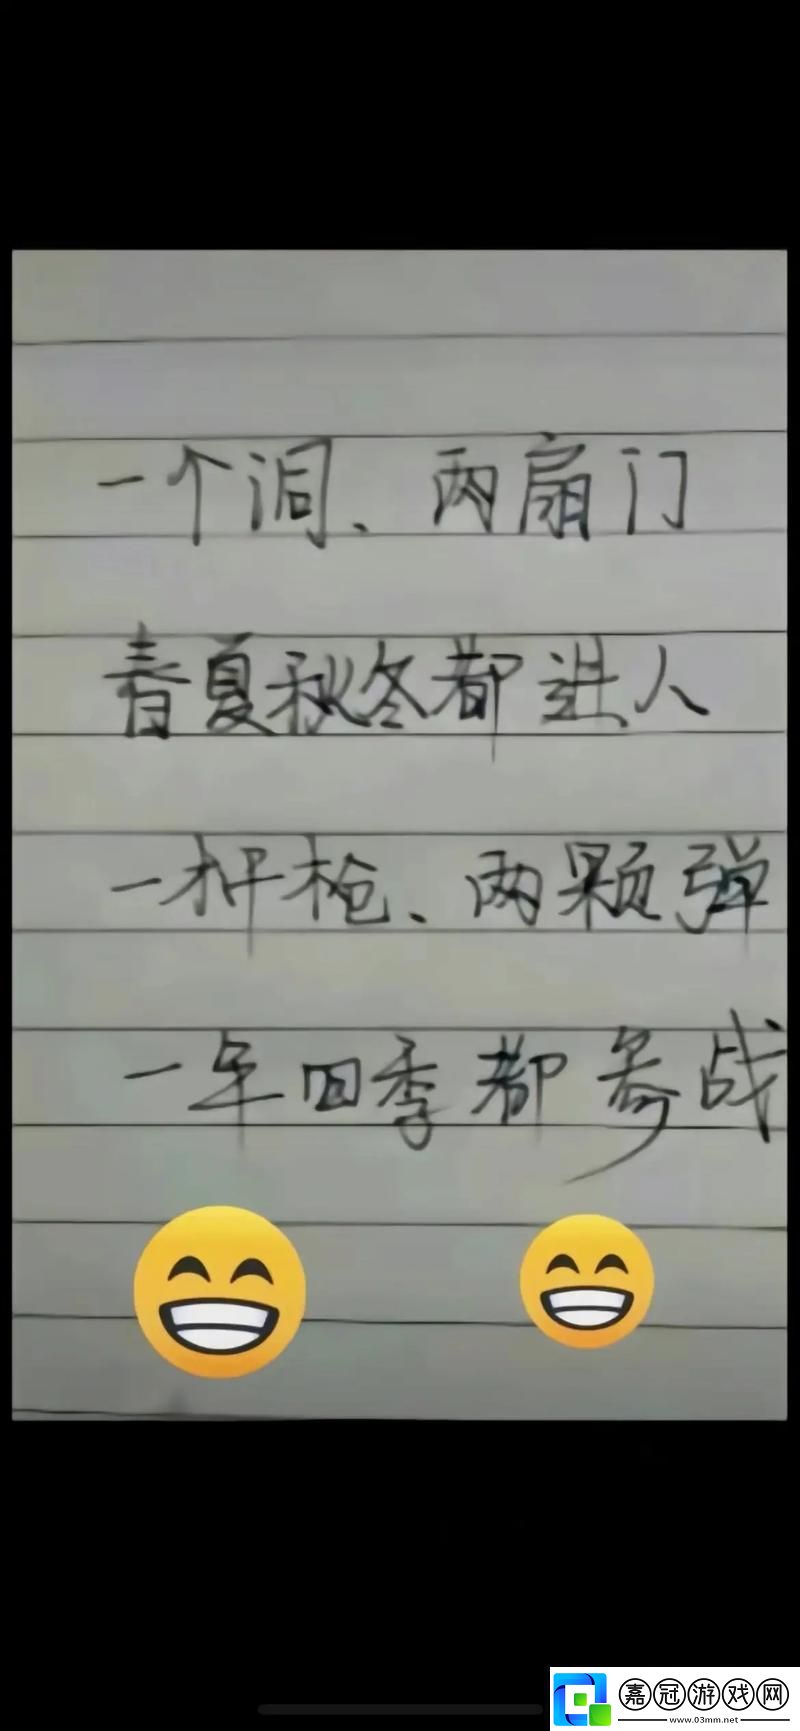 一个洞、两扇门
春夏秋冬都进人
一杆枪、两颗弹
一年四季都参战
嘉冠游戏网
www.03mm.net